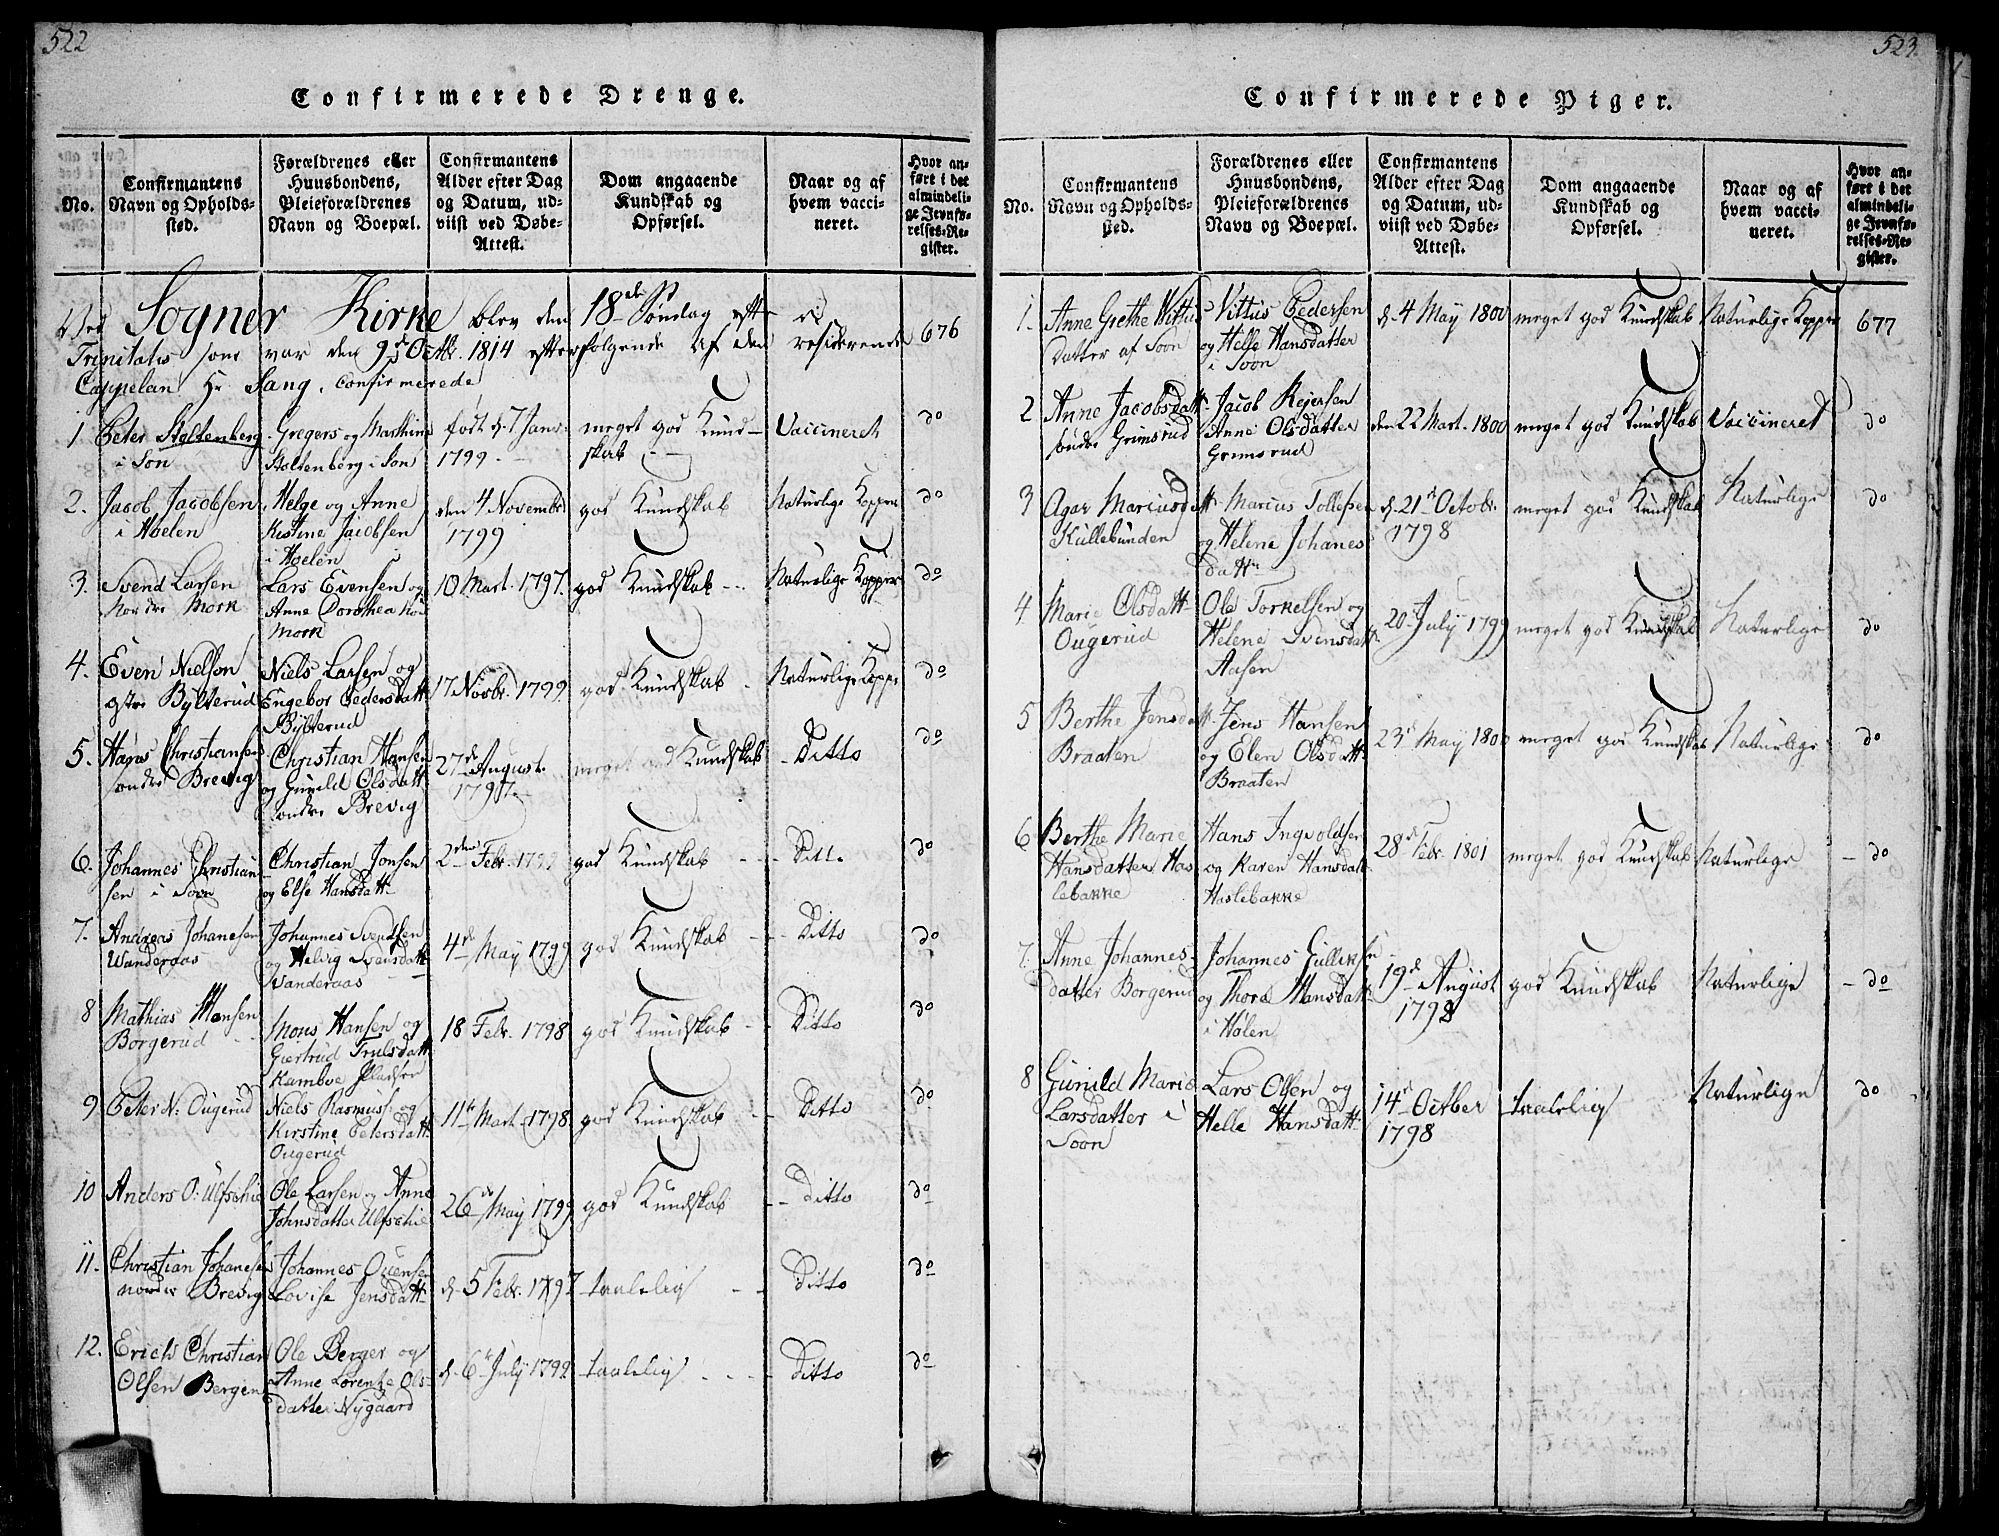 522
Confirmerede Drenge.
No.
Confirmantens
Navn og Opholds-
sted.
Forældrenes eller
Huusbondens,
Pleieforældrenes
Navn og Boepæl.
Confirmantens
Alder efter Dag
og Datum, ud-
viist ved Døbe-
Attest.
Dom angaaende
Kundskab og
Opførsel.
Naar og af
hvem vacci-
neret.
Hvor an-
ført i det
almindeli-
ge Jevnfø-
relses-Re-
gister.
Ved Sogner Kirke blev den 18de Søndag efter
Trinitatis som var den 9de Octbr. 1814 efterfølgende af den residerende 676
Cappelan Hr Lang, confirmerede
1 Peter Stoltenberg Gregers og Marthine født d. 7 Janr. meget god Kund- Vaccineret do
i Son Stoltenberg i Son 1799 skab
2. Jacob Jacobsen Helge og Anne den 4 Novembr god Kundskab Naturlige Kopper do
i Hoelen Kistine Jacobsen 1799
i Hoelen
3. Svend Larsen Lars Evensen og 10 Mart. 1797. god Kundskab Naturlige Kopper do
nordre Mork Anne Dorothea
Mork
4. Even Nielson Niels Larsen og 17 Novbr. 1799 god Kundskab Naturlige Kopper do
østre Bylterud Engebor Pedersdatt
Bylterud
5. Hans Christiansen Christian Hansen 27de August. meget god Kundskab Ditto do
søndre Brevig og Gunild Olsdatt 1797.
søndre Brevig
6. Johannes Christian Christian Jonsen 2den Febr. 1799 god Kundskab Ditto do
sen i Soon og Else Hansdatt
7. Andreas Johanesen Johannes Svendsen 4de May 1799 god Kundskab Ditto do
Wanderaas og Helvig Svensdatt
Wanderaas
8 Mathias Monsen Mons Hansen og 18 Febr. 1798 god Kundskab Ditto do
Borgerud Giertrud Trulsdatt
Kamboe Pladsen
9 Peter N: Ougerud Niels Rasmuss. og 11te Mart. 1798 god Kundskab Ditto do
Kirstine Petersdatt
Ougerud
10 Anders O: Ulfschie Ole Larsen og Anne 26de May 1799 god Kundskab Ditto do
Johnsdatter Ulfschie
11. Christian Johanesen Johannes Ouensen d. 5 Febr. 1797 taalelig Ditto do
nordre Brevig Lovise Jensdatt
12. Erich Christian Ole Berger og d. 6te July 1799 taalelig Ditto do
Olsen Bergen Anne Lorentze Ols-
datter Nygaard
523
Confirmerede Piger.
No.
Confirmantens
Navn og Opholds-
sted.
Forældrenes eller
Huusbondens,
Pleieforældrenes
Navn og Boepæl.
Confirmantens
Alder efter Dag
og Datum, ud-
viist ved Døbe-
Attest.
Dom angaaende
Kundskab og
Opførsel.
Naar og af
hvem vacci-
neret.
Hvor an-
ført i det
almindeli-
ge Jevnfø-
relses-Re-
gister.
1. Anne Grethe Vittus Vittus Pedersen d. 4 May 1800 meget god Kundskab Naturlige Kopper 677
datter af Soon og Helle Hansdatter
i Soon
2 Anne Jacobsdatt Jacob Rejersen den 22 Mart. 1800 meget god Kundskab Vaccineret do
søndre Grimsrud Anne Olsdatter
Grimsrud
3 Agar Mariusdatt Marcus Tollefsen d. 21de Octobr. meget god Kundskab Naturlige do
Kullebunden og Helene Johanes 1798
datter
4 Marie Olsdatt Ole Torkelsen og 20 July 1799 meget god Kundskab Naturlige do
Ougerud Helene Svensdatt
Aasen
5 Berthe Jensdatt Jens Hansen 23de May 1800 meget god Kundskab Naturlige do
Braaten og Elen Olsdatt
Braaten
6 Berthe Marie Hans Ingvoldsen 28de Febr. 1801 meget god Kundskab Naturlige do
Hansdatter Has og Karen Hansdatt
lebakke Haslebakke
7. Anne Johannes- Johannes Gulliksen 19de August god Kundskab Naturlige do
datter Borgerud og Thore Hansdatt 1798
i Hølen
8 Gunild Marie Lars Olsen og 14de Octber taalelig Naturlige do
Larsdatter i Helle Hansdatt 1798
Soon